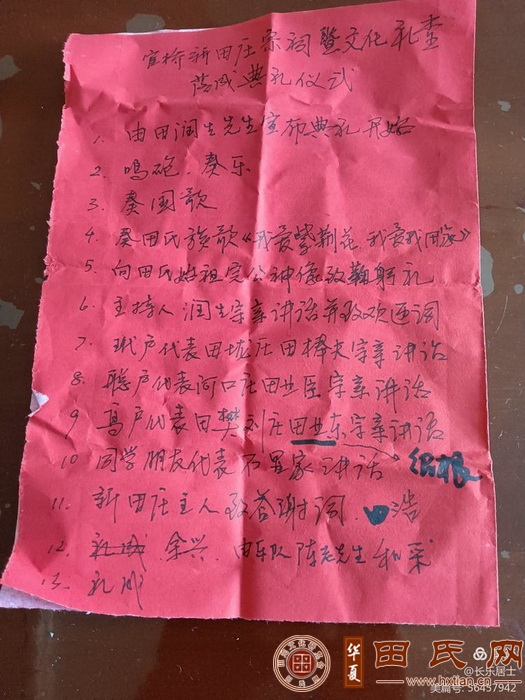 官桥新田庄宗祠暨文化礼堂
落成典礼仪式
1. 由田润生先生宣布典礼开始
2. 鸣砲.奏乐
3. 奏国歌
4. 奏田氏族歌《我爱紫荆花 我爱我田家》
5. 向田氏始祖完公神像致鞠躬礼
6. 主持人 润生宗亲讲话并致欢迎词
7. 户代表田垅庄田棒夫宗亲讲话
8. 聪户代表河口庄田业臣宗亲讲话
9 高户代表田樊刘庄田业东宗亲讲话
10 同学朋友代表 石罢家讲话 绍根
11. 新田庄主人致答谢词. 田浩
12. 礼成 余兴. 由车队陈老先生和采
13. 礼成
华夏
田氏网
www.hxtian.cn
@长乐居士
美篇号: 56457942